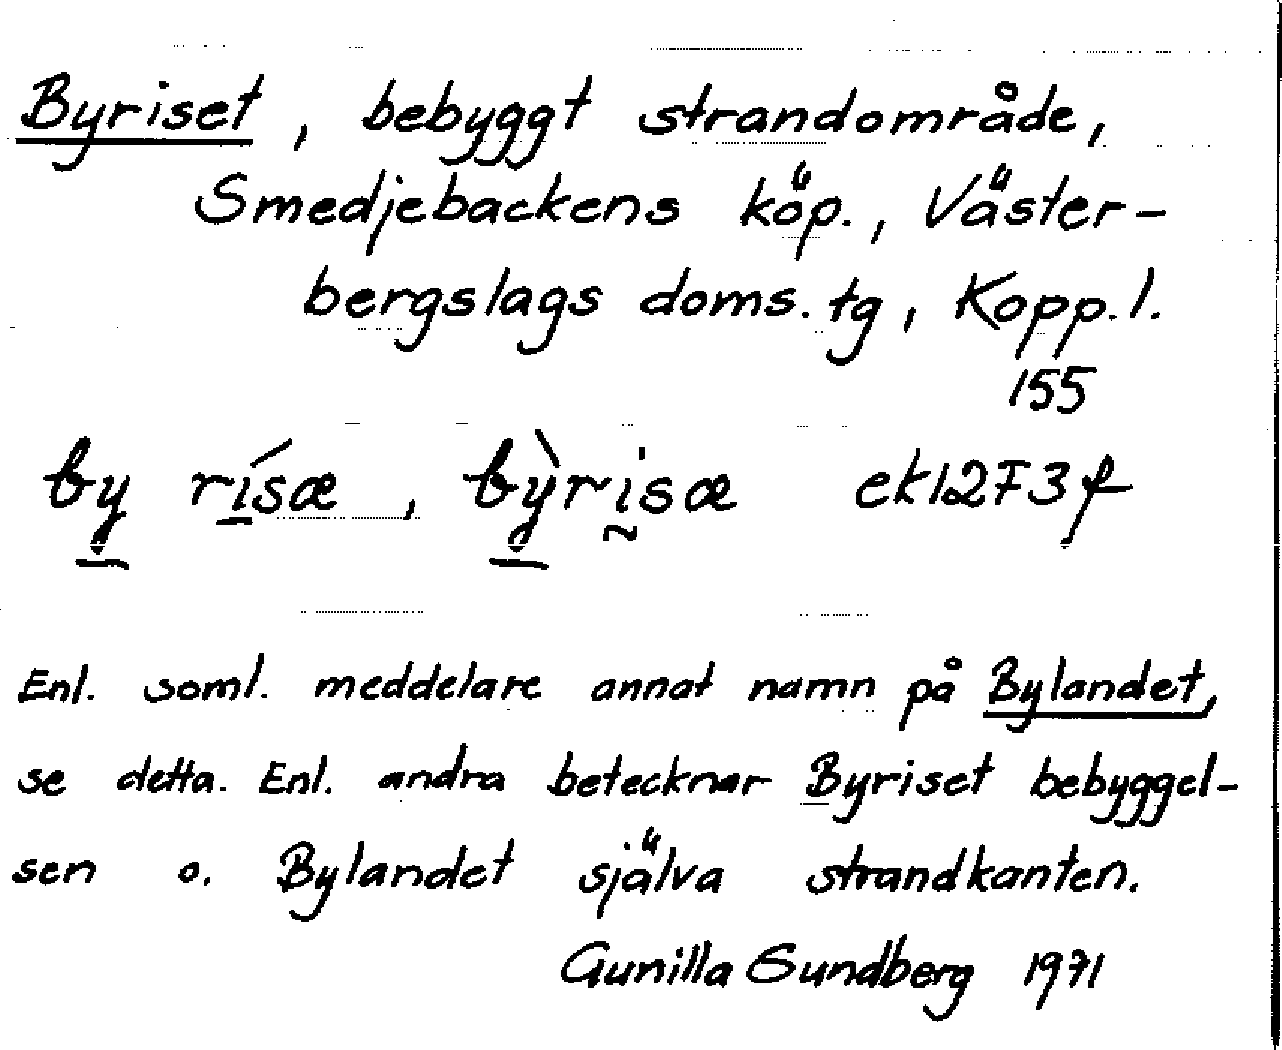 Byriset, bebyggt strandområde,
Smedjebackens köp., Väster-
bergslags doms. tg, Kopp. l.
155
by rísæ, bỳrisæ ek12F3f
Enl. soml. meddelare annat namn på Bylandet,
se detta. Enl. andra betecknar Byriset bebyggel-
sen o. Bylandet själva strandkanten.
Gunilla Sundberg 1971